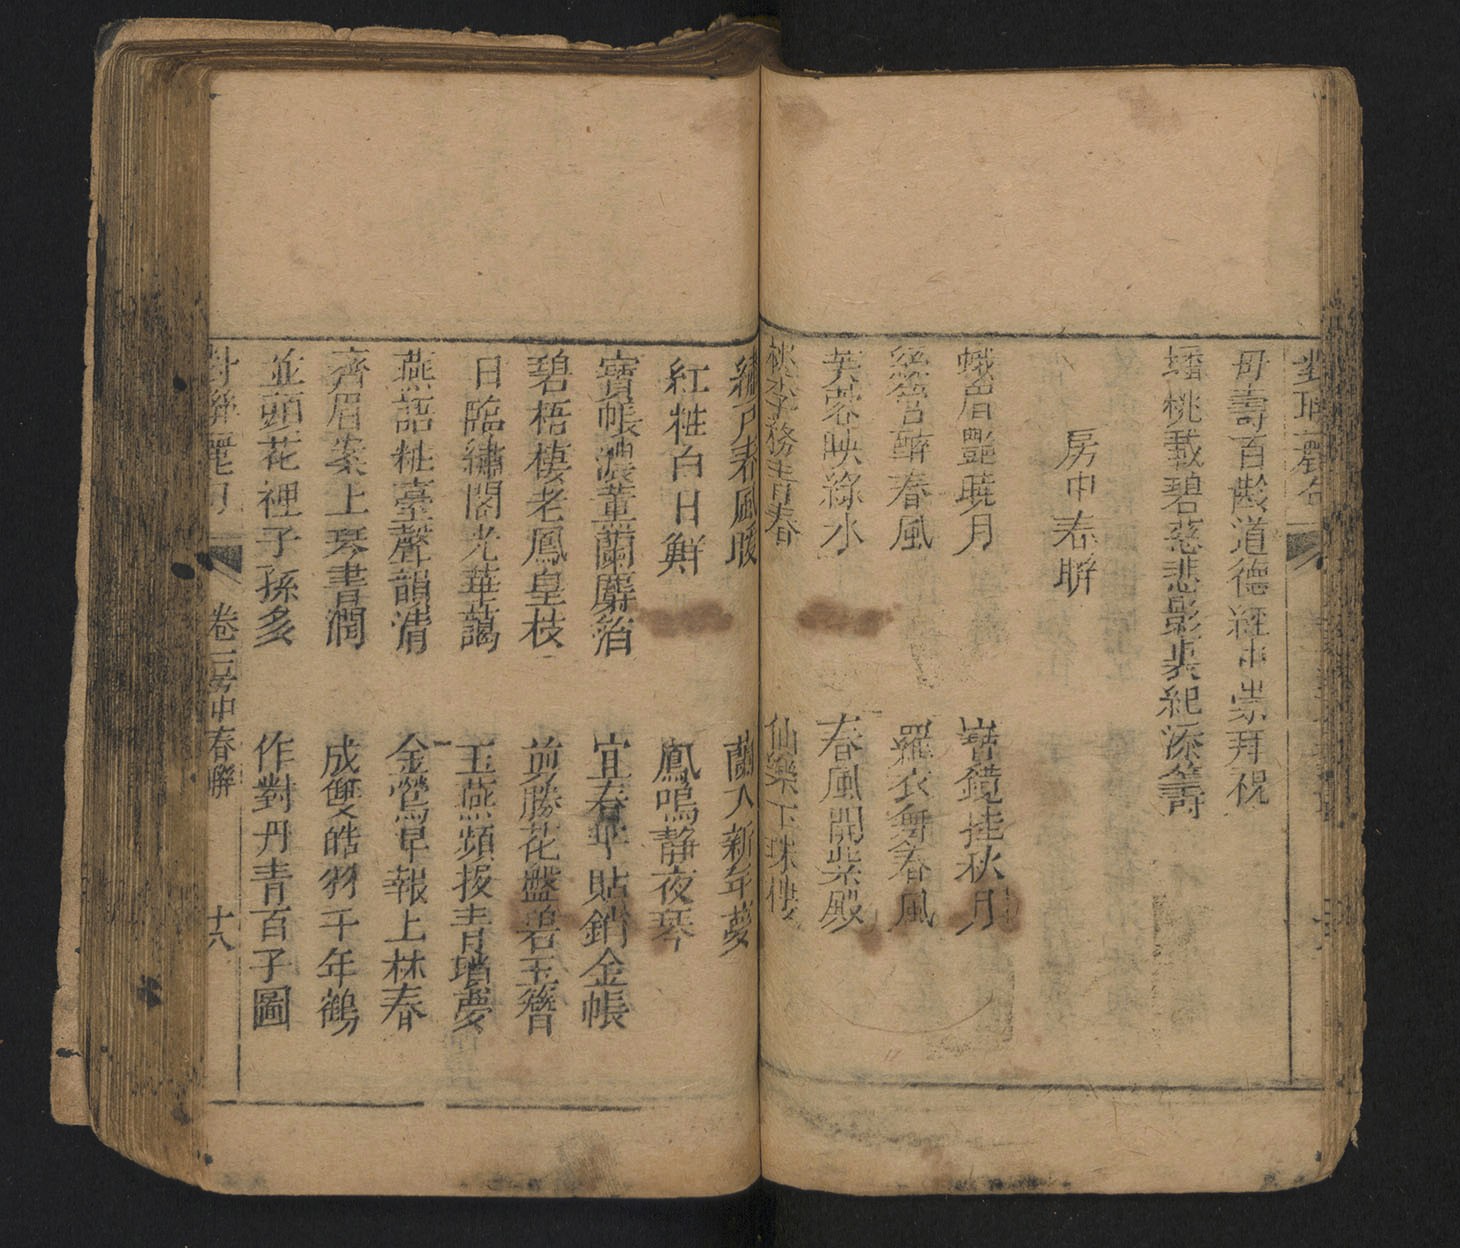 母壽百齡道德經中崇拜祝
蟠桃載碧慈悲影裏紀添籌
房中春聯
蛾眉艷曉月 寶鏡挂秋月
絲管醉春風 羅衣舞春風
芙蓉映綠水 春風開紫殿
桃李務青春 仙樂下珠樓
繡戶春風暖 蘭入新年夢
紅粧白日鮮 鳳鳴靜夜琴
寶帳濃薰蘭麝 宜春早貼銷金帳
碧梧棲老鳳皇枝 剪勝花盤碧玉簪
日臨繡閣光華藹 玉燕頻投青瑣夢
燕語粧臺聲韻清 金鶯早報上林春
齊眉案上琴書潤 成雙皓羽千年鶴
並頭花裡子孫多 作對丹青百子圖
卷二房中春聯 十八